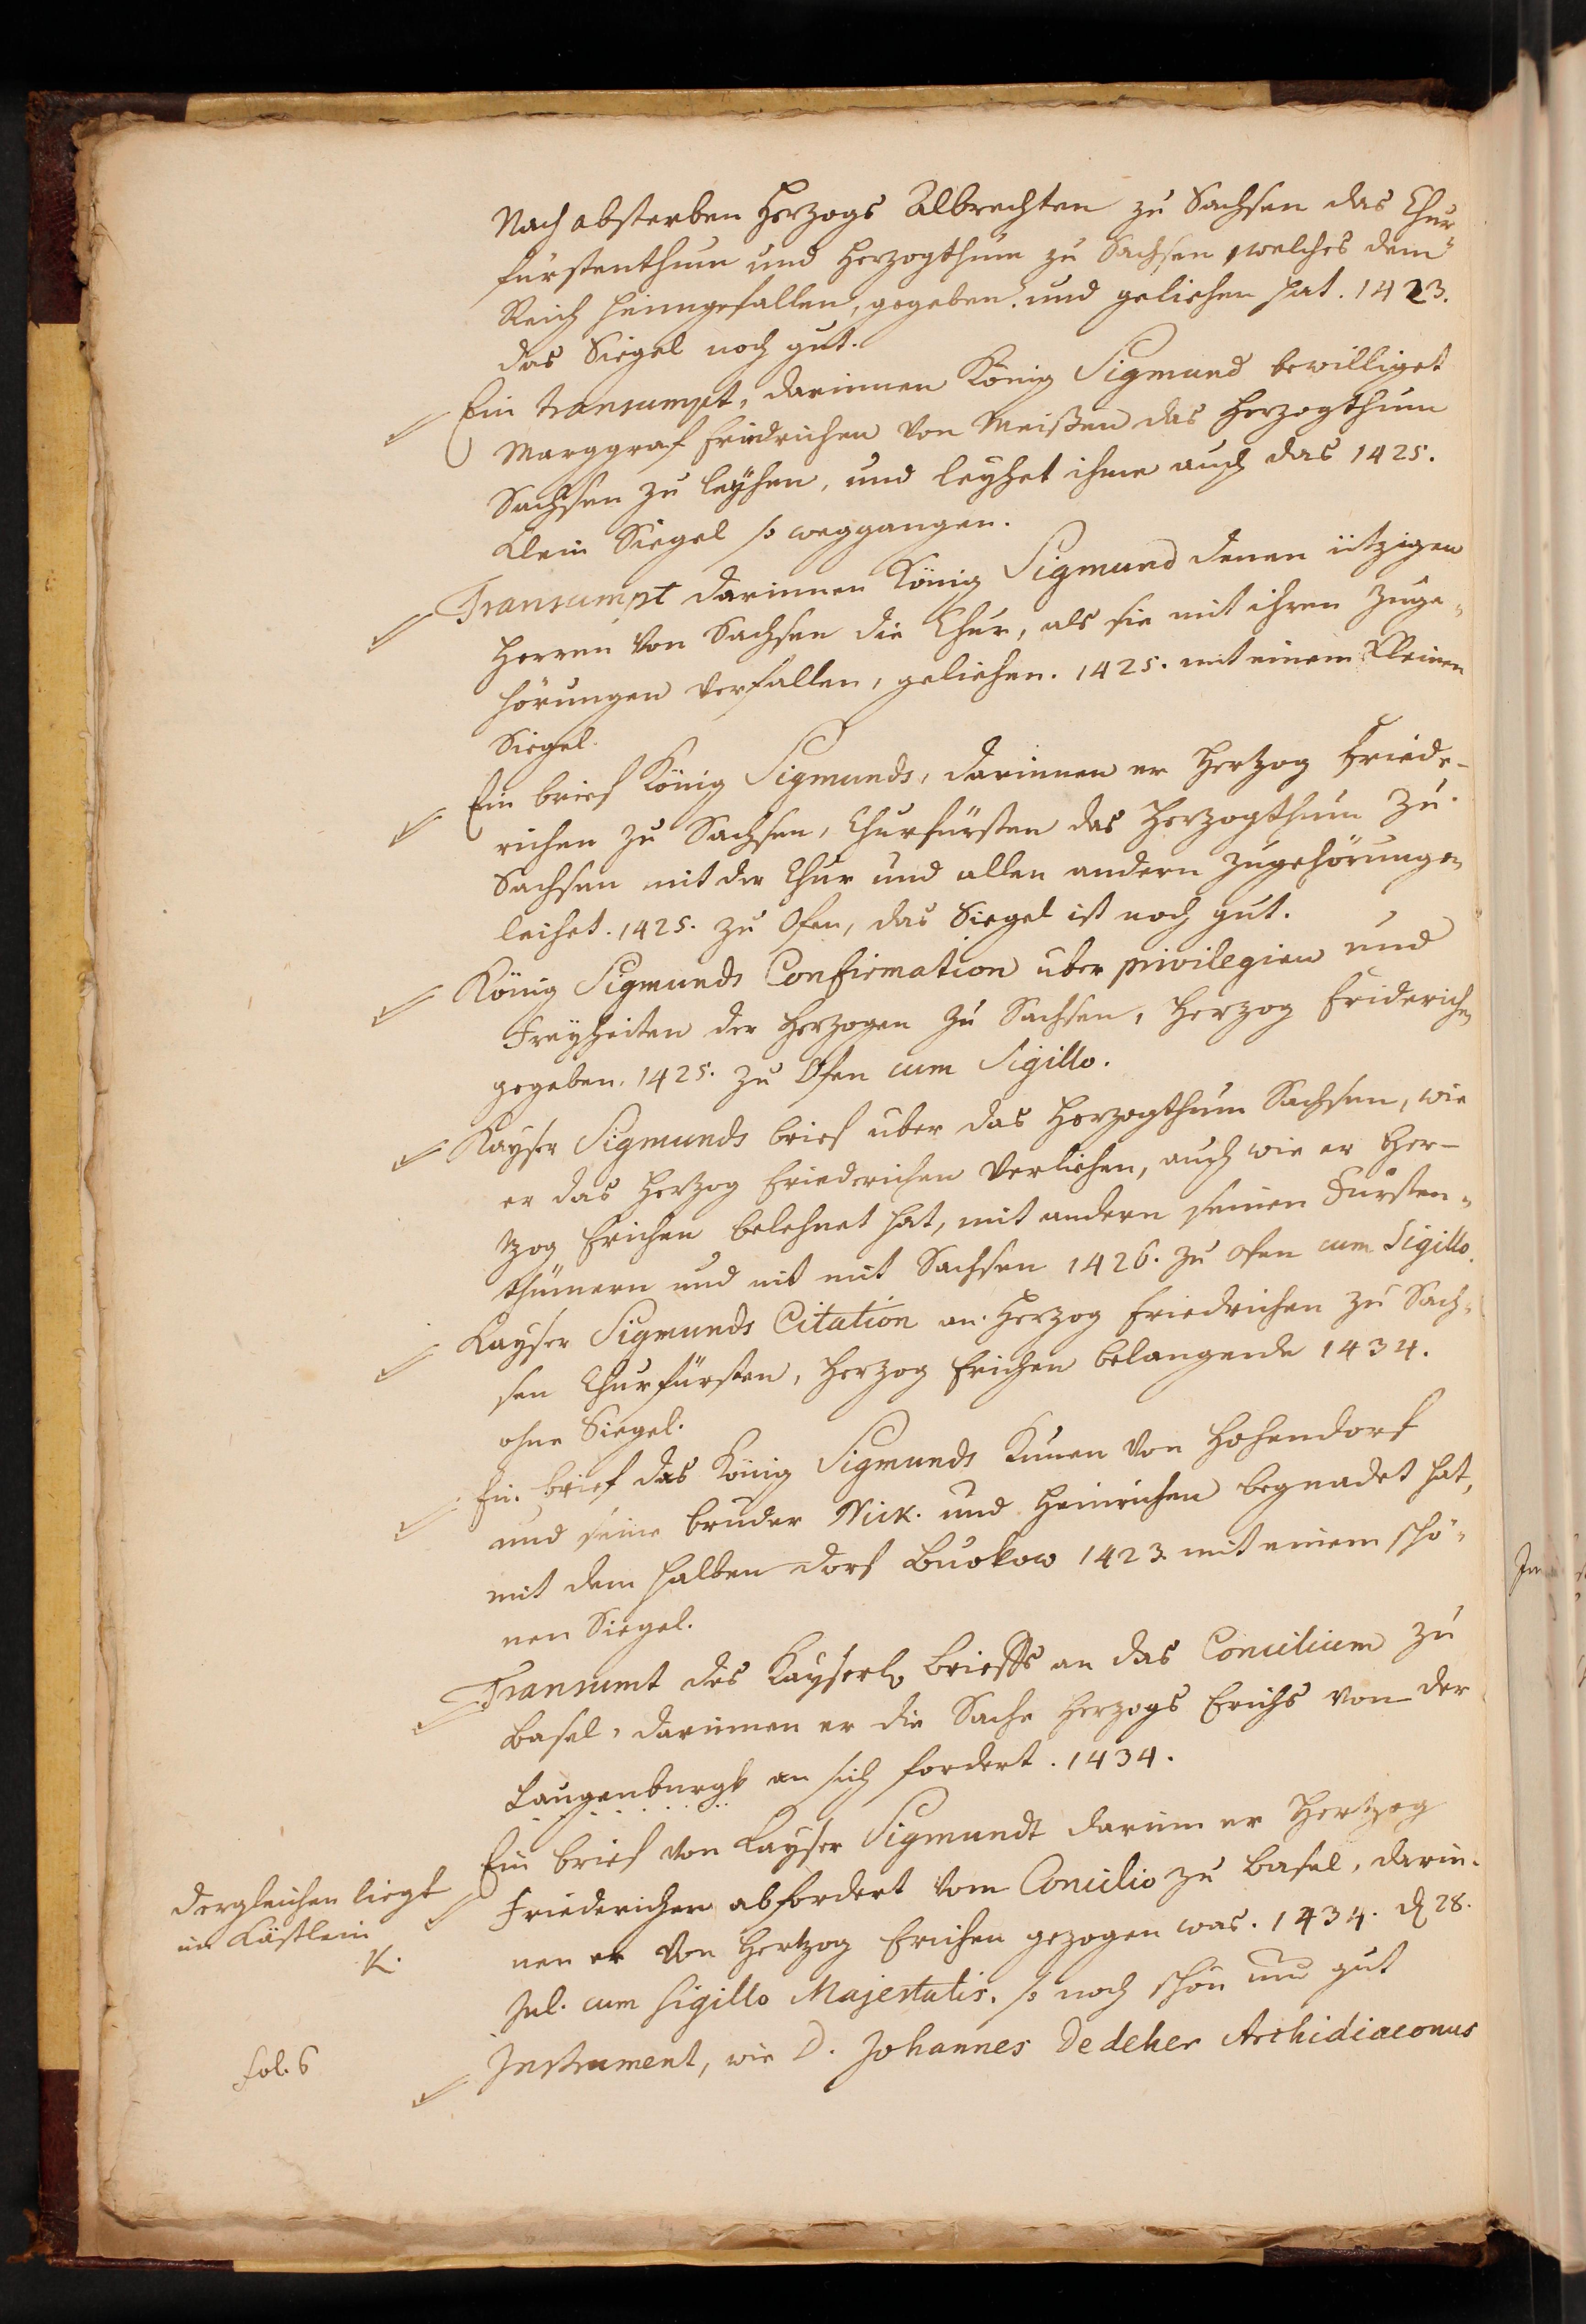 Nach absterben Herzogs Albrechten zu Sachsen das Chur
fürstenthum und Herzogthum zu Sachsen, welches dem
Reich heimgefallen, gegeben und geliehen hat. 1423.
das Siegel noch gut.
Ein transumpt, darinnen König Sigmund bewilliget
Marggraf Friedrichen von Meißen das Herzogthum
Sachsen zu leyhen, und leyhet ihme auch das 1425.
klein Siegel so weggangen.
Transumpt darinnen König Sigmund denen itzigen
Herren von Sachsen die Chur, als sie mit ihren Zuge-
hörungen verfallen, geliehen. 1425. mit einem kleinen
Siegel.
Ein brief König Sigmunds, darinnen er Hertzog Friede-
richen zu Sachsen, Churfürsten das Herzogthum zu
Sachsen mit der Chur und allen andern Zugehörungen
leihet. 1425. zu Ofen, das Siegel ist noch gut.
König Sigmunds Confirmation uber privilegien und
Freyheiten der Herzogen zu Sachsen, Herzog Friderichen
gegeben. 1425. zu Ofen cum Sigillo.
Kayser Sigmunds brief uber das Herzogthum Sachsen, wie
er das Hertzog Friederichen verliehen, auch wie er Her-
tzog Erichen belehnet hat, mit andern seinen Fürsten-
thümern und nit mit Sachsen 1426. zu Ofen cum Sigillo.
Kayser Sigmunds Citation an Herzog Friedrichen zu Sach-
sen Churfürsten, Herzog Erichen belangende 1434.
ohne Siegel.
Ein brief das König Sigmunds Kunen von Hohendorf
und seine bruder Nick. und Heinrichen begnadet hat,
mit dem halben dorf Buckow 1423. mit einem schö-
nen Siegel.
Transumt des Kayserl. Brieffs an das Concilium zu
Basel, darinnen er die Sache Herzogs Erichs von der
Laugenburgk an sich fordert. 1434.
Ein brief von Kayser Sigmundt darinn er Hertzog
dergleichen liegt
im Kästlein
K.
Friederichen abfordert vom Concilio zu Basel, darin-
nen er von Hertzog Erichen gezogen was. 1434. d 28.
Jul. cum Sigillo Majestatis. so noch schön und gut
Instrument, wie D. Johannes Dedeher Archidiaconus
fol. 6